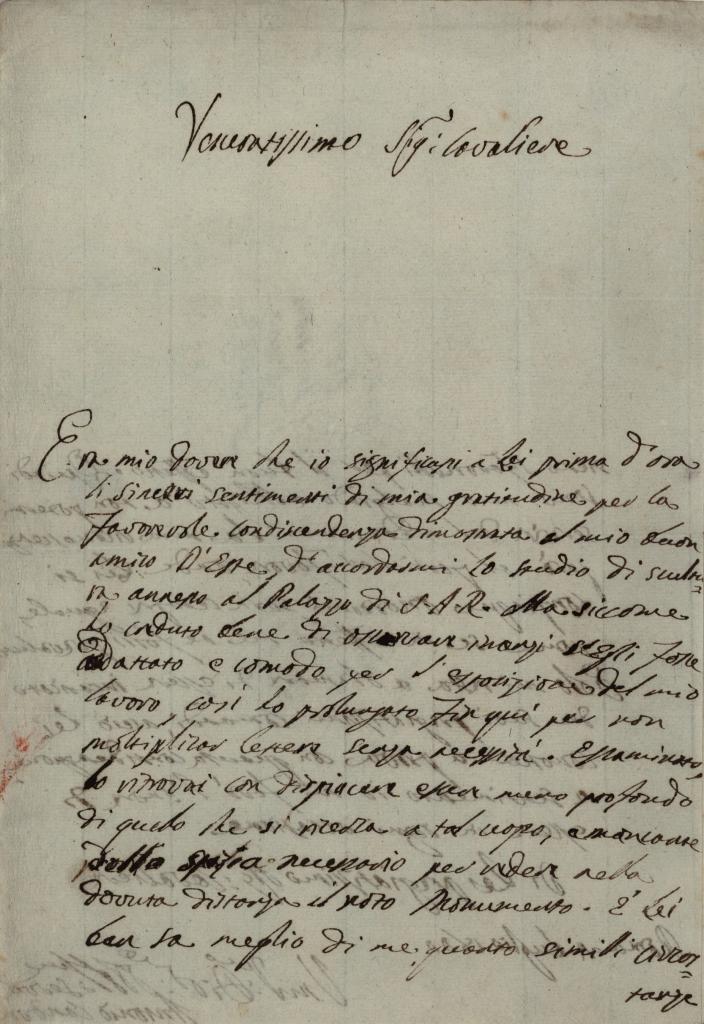 Veneratissimo Sig.r Cavaliere
Era mio dovere che io significassi a Lei prima d'ora
li sinceri sentimenti di mia gratitudine per la
favorevole condiscendenza dimostrata al mio buon
amico D'Este, d'accordarmi lo studio di scultu=
ra annesso al Palazzo di S A R. Ma siccome
ho creduto bene di osservare inanzi s'egli fosse
addattato e comodo per l'esposizione del mio
lavoro, così ho prolungato fin qui per non
moltiplicar lettere senza necessità. Essaminato,
lo ritrovai con dispiacere esser meno profondo
di quelo che si ricerca a tal uopo, e mancante
dello spazio necessario per vedere nella
dovuta distanza il noto Monumento. E Lei
ben sa meglio di me quanto simili circos=
tanze